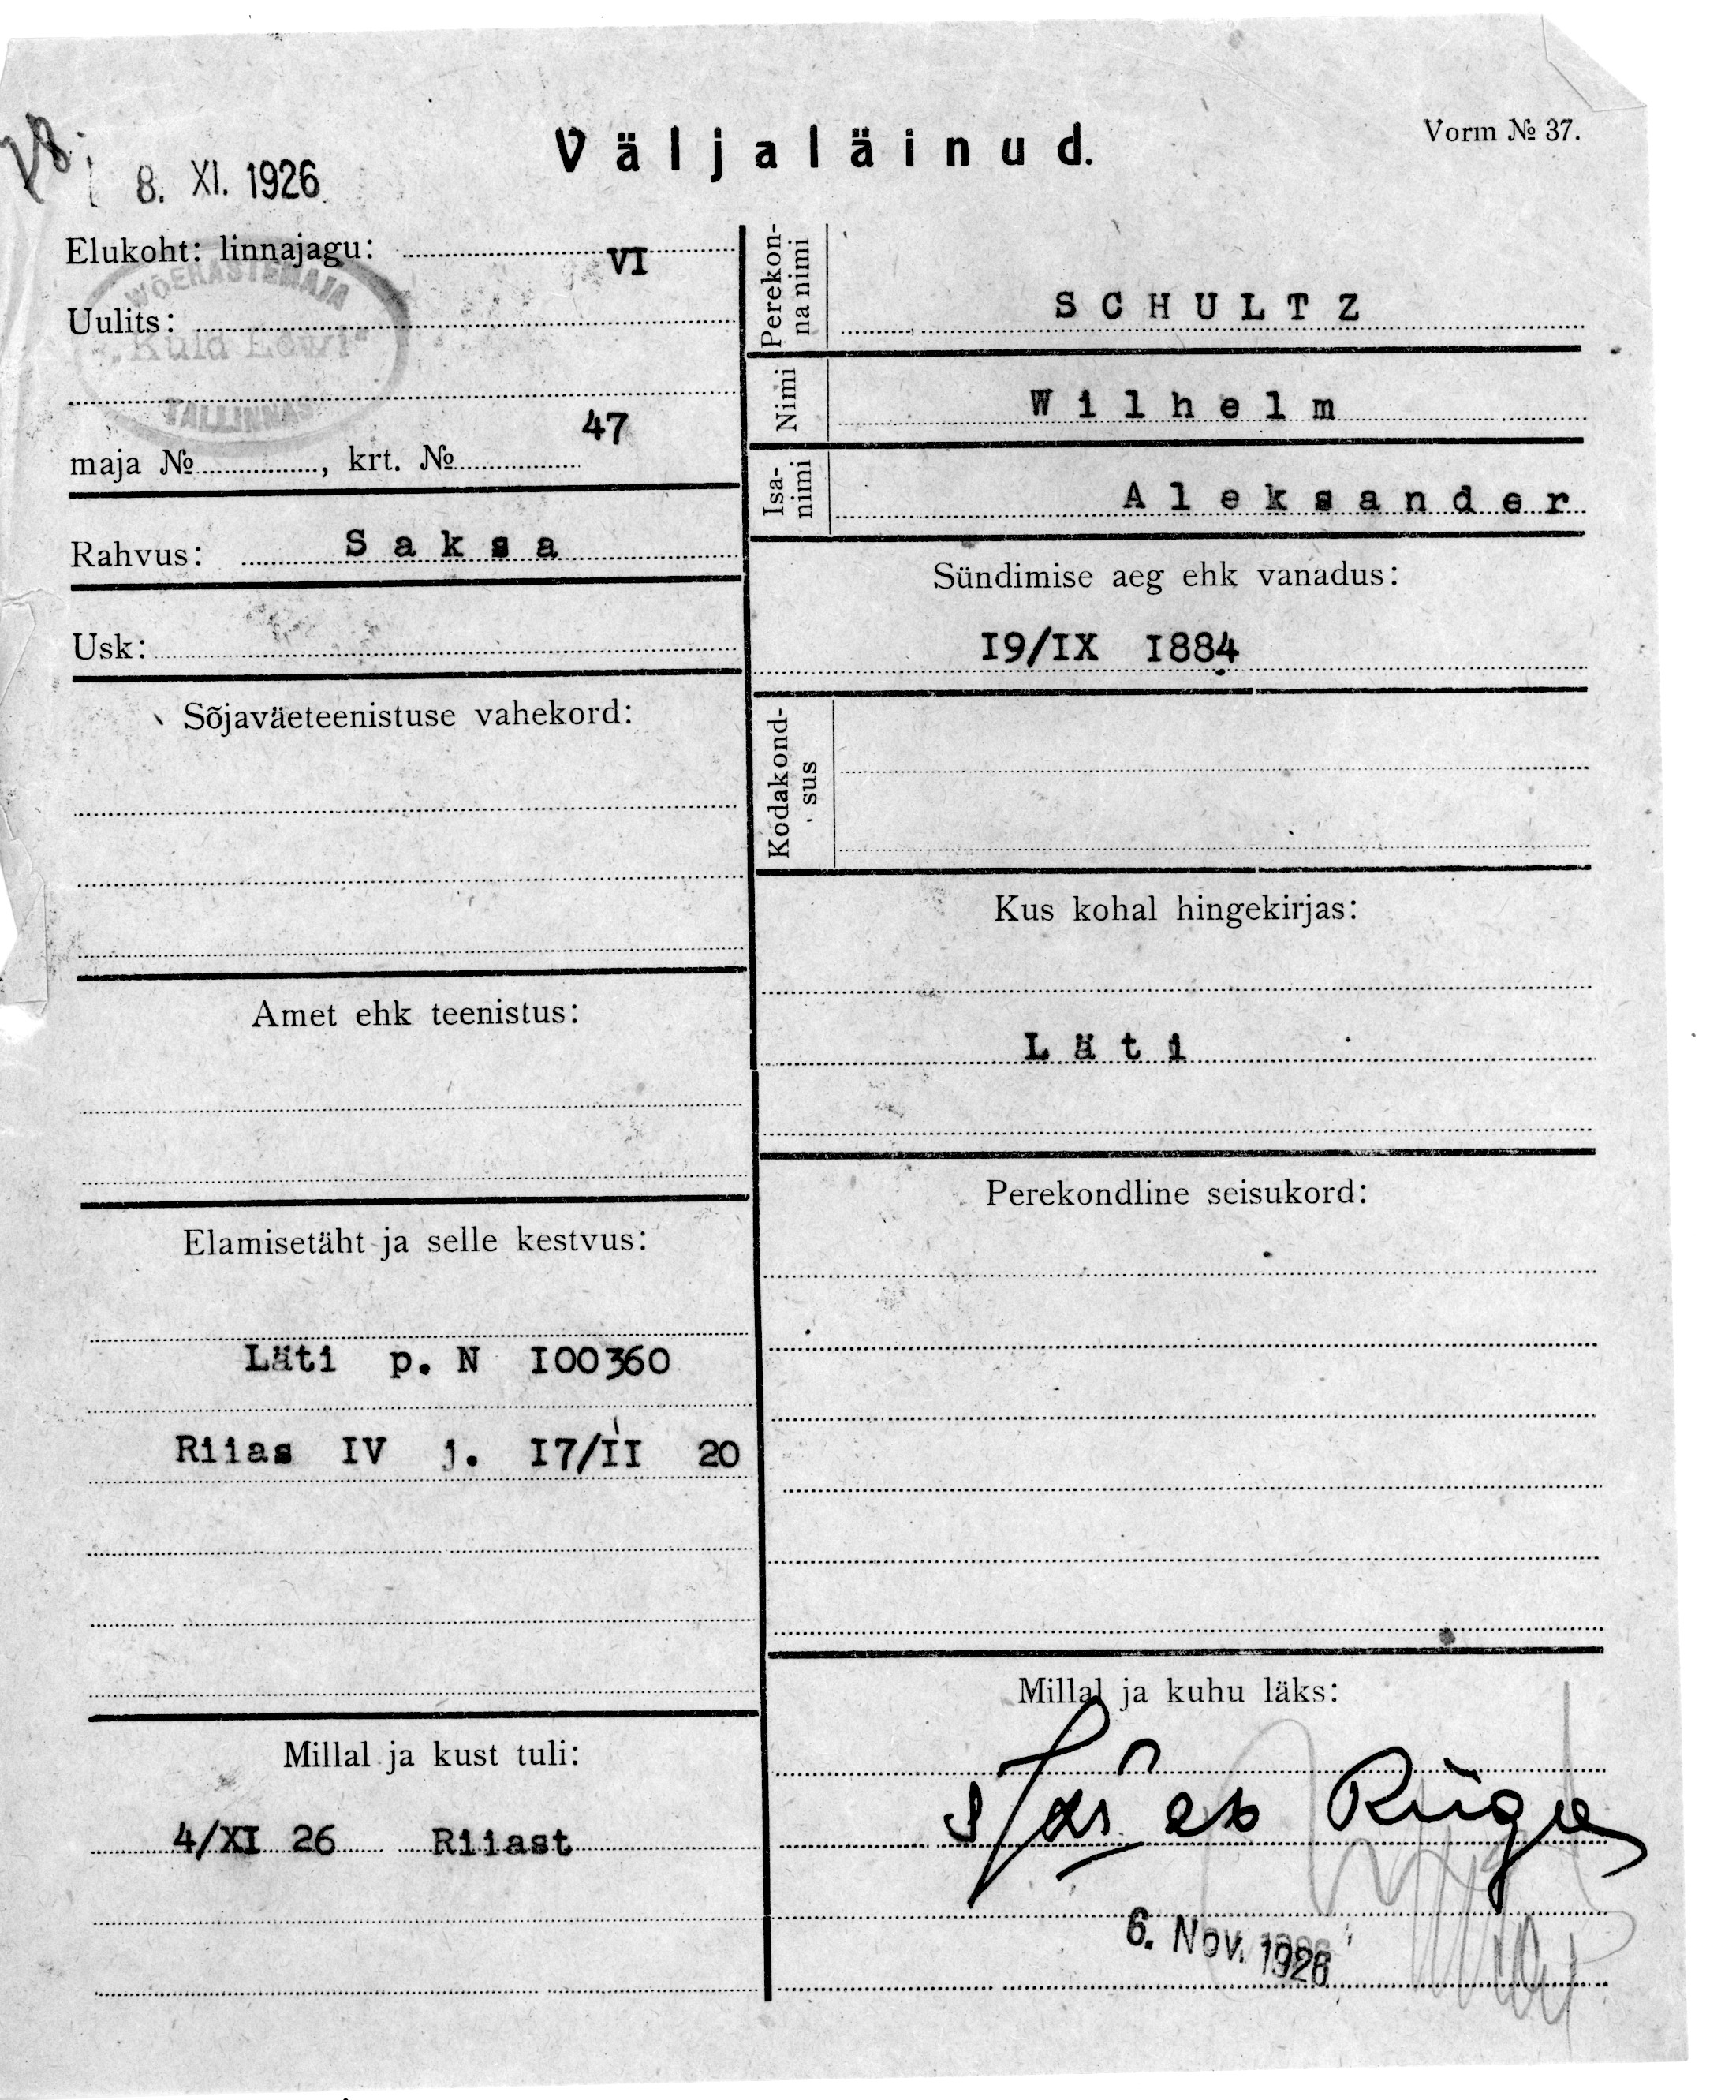 Väljaläinud.
Vorm № 37.
8. XI. 1926
Elukoht: linnajagu: VI
WÕERASTEMAJA
Uulits:
„Kuld Lõwi"
TALLINNAS
maja № , krt. № 47
Rahvus: Saksa
Usk:
Sõjaväeteenistuse vahekord:
Amet ehk teenistus:
Elamisetäht ja selle kestvus:
Läti p. N I00360
Riias IV j. I7/II 20
Millal ja kust tuli:
4/XI 26 Riiast
Perekon-
na nimi
SCHULTZ
Nimi Wilhelm
Isa-
nimi
Aleksander
Sündimise aeg ehk vanadus:
I9/IX I884
Kodakond-
sus
Kus kohal hingekirjas:
Läti
Perekondline seisukord:
Millal ja kuhu läks:
6. Nov. 1926